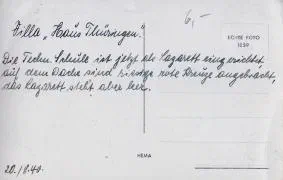 Villa „Haus Thüringen."
6,–
ECHTE FOTO
1039
Die Techn. Schule ist jetzt als Lazarett eingerichtet,
auf dem Dache sind riesige rote Kreuze angebracht,
das Lazarett steht aber leer.
HEMA
20./8.40.